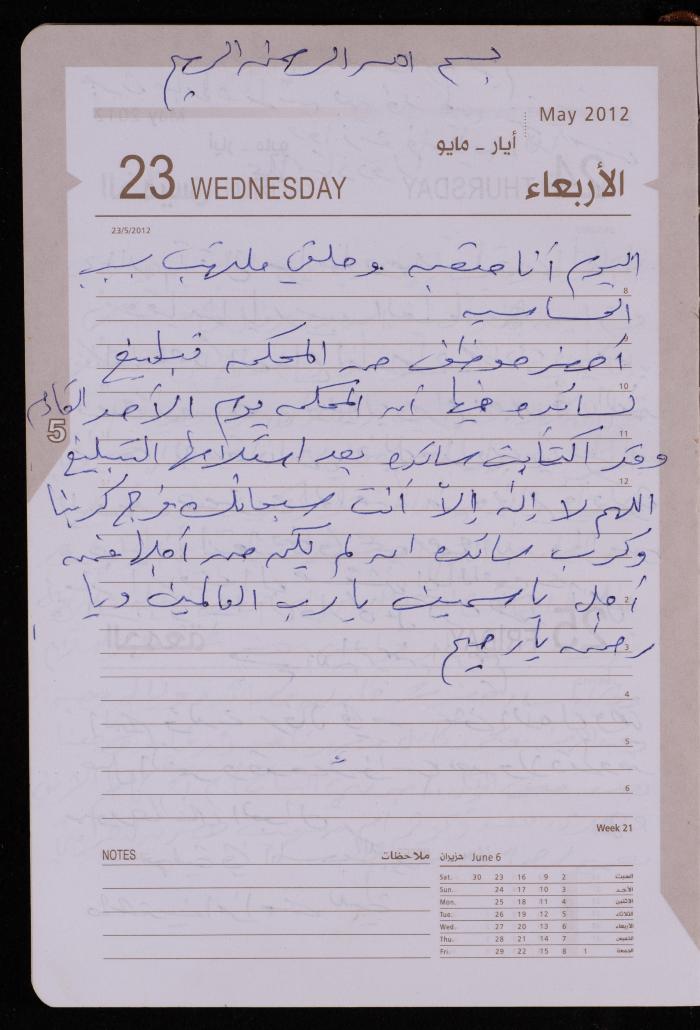 بسم الله الرحمن الرحيم
May 2012
أيار - مايو
23 WEDNESDAY الأربعاء
23/5/2012
اليوم أنا متعبه وحلقي ملتهب بسبب
8
الحساسيه
9
أحضر موظف من المحكمه تبليغ
10
لسائده فيها أن المحكمه يوم الأحد القادم
5
11
وقد اكتأبت سائده بعد استلامها التبليغ
12
اللهم لا إله إلا أنت سبحانك فرج كربنا
وكرب سائده ان لم يكن من أجلها فمن
أجل ياسمين يا رب العالمين ويا
2
رحمن يا رحيم
3
4
5
6
Week 21
NOTES ملاحظات
June 6 حزيران
Sat. 30 23 16 9 2 السبت
Sun. 24 17 10 3 الأحد
Mon. 25 18 11 4 الاثنين
Tue. 26 19 12 5 الثلاثاء
Wed. 27 20 13 6 الأربعاء
Thu. 28 21 14 7 الخميس
Fri. 29 22 15 8 1 الجمعة